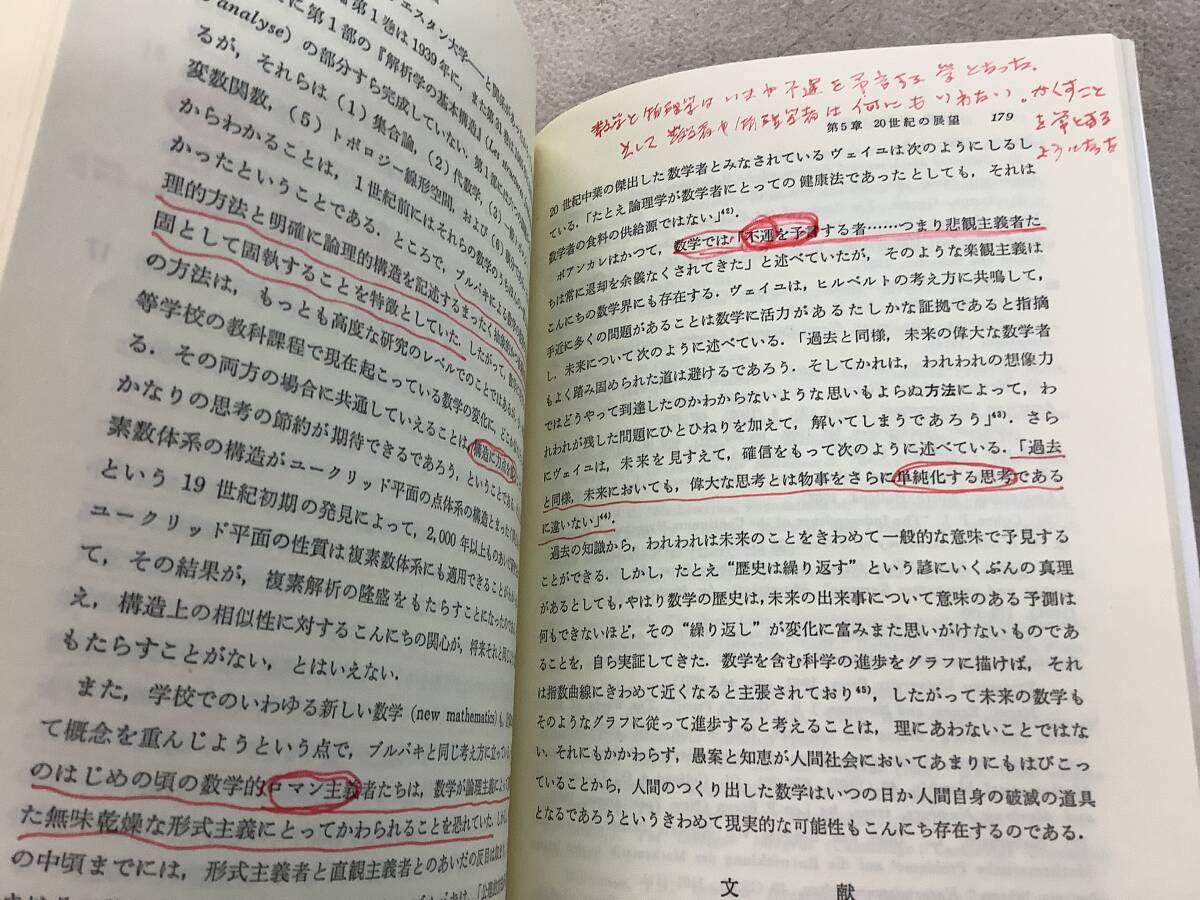 エスタン大学――と関係があっ
第1巻は1939年に，また第31巻は
に第1部の『解析学の基本構造』(Les
analyse) の部分すら完成していない．第1部には
るが，それらは (1) 集合論，(2) 代数学，(3) 一般
変数関数，(5) トポロジー線形空間，および (6)
からわかることは，1世紀前にはそれらの数学のうち
かったということである．ところで，ブルバキによる数学
理的方法と明確に論理的構造を記述するまったく抽象的
固として固執することを特徴としていた．したがって，
の方法は，もっとも高度な研究のレベルでのことではあるが，
等学校の教科課程で現在起こっている数学の変化に，
る．その両方の場合に共通していえることは，構造に力点を
かなりの思考の節約が期待できるであろう，ということである．
素数体系の構造がユークリッド平面の点体系の構造とまった
という 19 世紀初期の発見によって，2,000 年以上ものあいだ
ユークリッド平面の性質は複素数体系にも適用できることが
て，その結果が，複素解析の隆盛をもたらすことになったので
え，構造上の相似性に対するこんにちの関心が，将来それと同じ
もたらすことがない，とはいえない．
また，学校でのいわゆる新しい数学 (new mathematics) も，
て概念を重んじようという点で，ブルバキと同じ考え方に立って
のはじめの頃の数学的ロマン主義者たちは，数学が論理主義によって
た無味乾燥な形式主義にとってかわられることを恐れていた．
の中頃までには，形式主義者と直観主義者とのあいだの反目は
数学と物理学はいまや不運を予言する学となった．
そして数学者や物理学者は何にもいわない。かくすこと
を学とする
ようになった
第5章 20世紀の展望 179
20世紀中葉の傑出した数学者とみなされているヴェイユは次のようにしるし
ている．「たとえ論理学が数学者にとっての健康法であったとしても，それは
数学者の食料の供給源ではない」⁴²⁾．
ポアンカレはかつて，数学では「不運を予言する者……つまり悲観主義者た
ちは常に退却を余儀なくされてきた」と述べていたが，そのような楽観主義は
こんにちの数学界にも存在する．ヴェイユは，ヒルベルトの考え方に共鳴して，
手近に多くの問題があることは数学に活力があるたしかな証拠であると指摘
し，未来について次のように述べている．「過去と同様，未来の偉大な数学者
もよく踏み固められた道は避けるであろう．そしてかれは，われわれの想像力
ではどうやって到達したのかわからないような思いもよらぬ方法によって，わ
れわれが残した問題にひとひねりを加えて，解いてしまうであろう」⁴³⁾．さら
にヴェイユは，未来を見すえて，確信をもって次のように述べている．「過去
と同様，未来においても，偉大な思考とは物事をさらに単純化する思考である
に違いない」⁴⁴⁾．
過去の知識から，われわれは未来のことをきわめて一般的な意味で予見する
ことができる．しかし，たとえ“歴史は繰り返す”という諺にいくぶんの真理
があるとしても，やはり数学の歴史は，未来の出来事について意味のある予測は
何もできないほど，その“繰り返し”が変化に富みまた思いがけないものであ
ることを，自ら実証してきた．数学を含む科学の進歩をグラフに描けば，それ
は指数曲線にきわめて近くなると主張されており⁴⁵⁾，したがって未来の数学も
そのようなグラフに従って進歩すると考えることは，理にあわないことではな
い．それにもかかわらず，愚案と知恵が人間社会においてあまりにもはびこっ
ていることから，人間のつくり出した数学はいつの日か人間自身の破滅の道具
となるであろうというきわめて現実的な可能性もこんにち存在するのである．
文 献